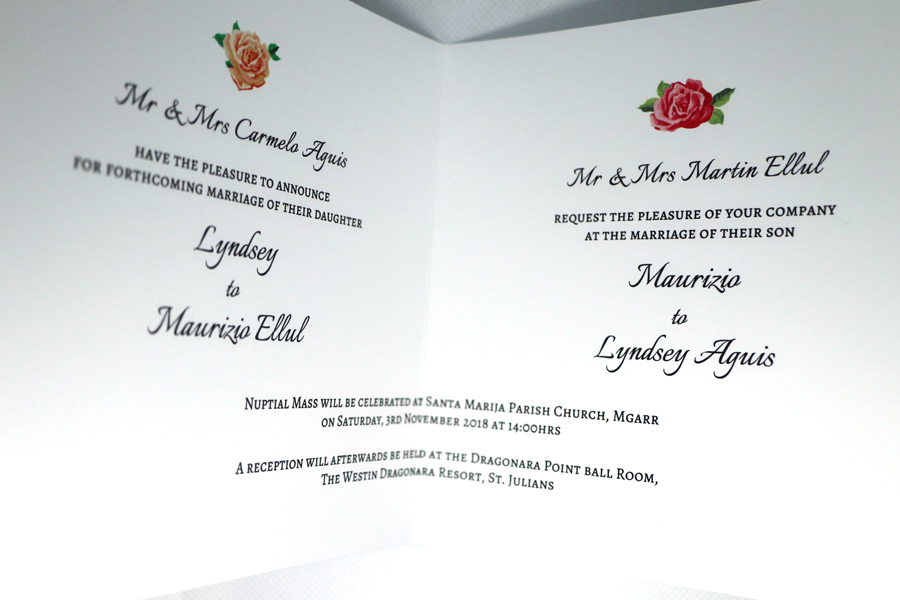 Mr & Mrs Carmelo Aguis
HAVE THE PLEASURE TO ANNOUNCE
FOR FORTHCOMING MARRIAGE OF THEIR DAUGHTER
Lyndsey
to
Maurizio Ellul
Mr & Mrs Martin Ellul
REQUEST THE PLEASURE OF YOUR COMPANY
AT THE MARRIAGE OF THEIR SON
Maurizio
to
Lyndsey Aguis
NUPTIAL MASS WILL BE CELEBRATED AT SANTA MARIJA PARISH CHURCH, MGARR
ON SATURDAY, 3RD NOVEMBER 2018 AT 14:00HRS
A RECEPTION WILL AFTERWARDS BE HELD AT THE DRAGONARA POINT BALL ROOM,
THE WESTIN DRAGONARA RESORT, ST. JULIANS